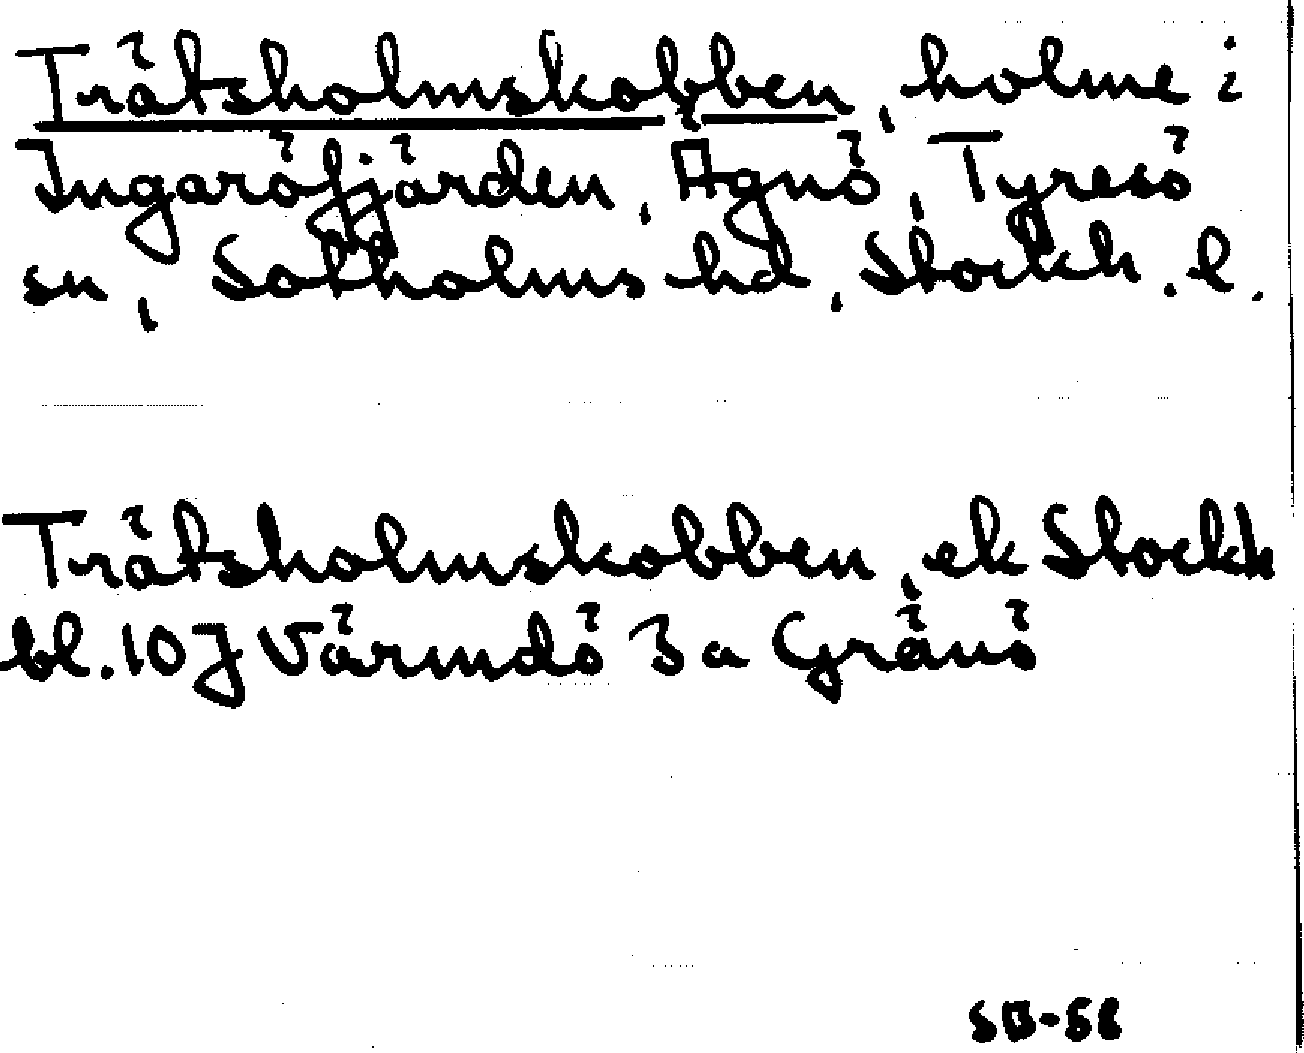 Trätsholmskobben, holme i
Ingaröfjärden, Ägnö, Tyresö
sn, Sotholms hd, Stockh. l.
Trätsholmskobben, ek Stockh
bl. 10J Värmdö 3a Gränö
SB-58